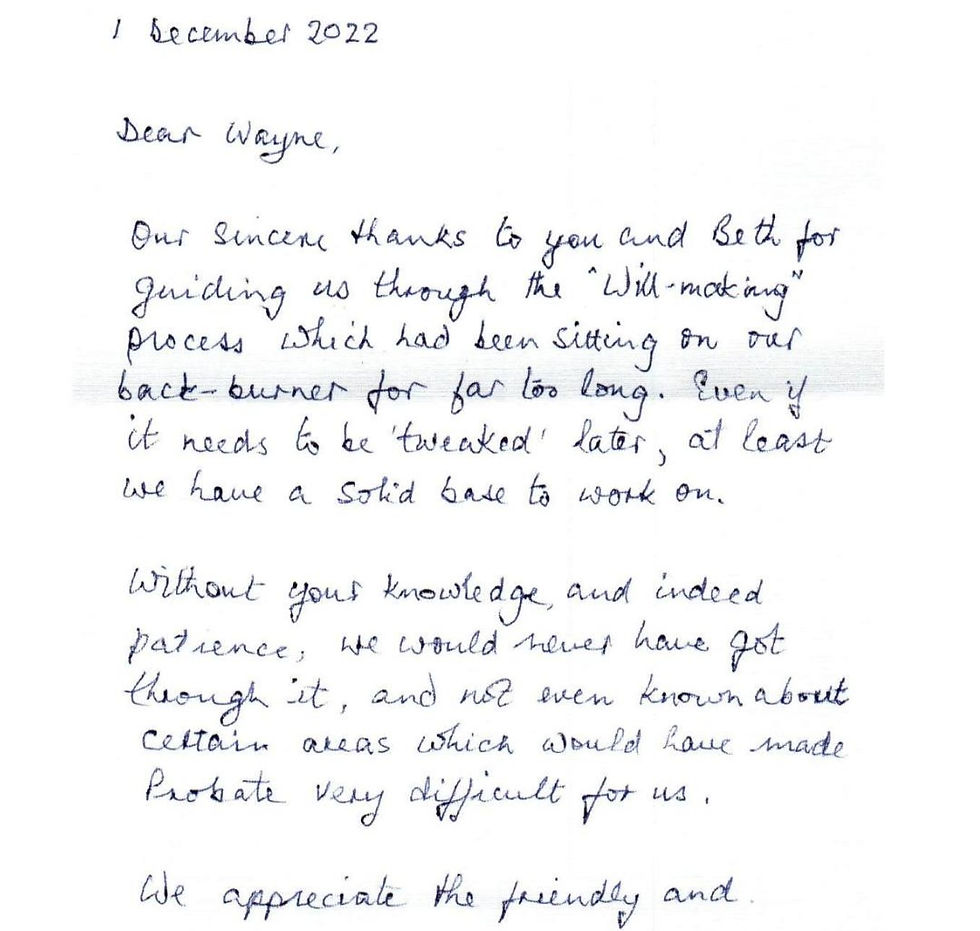 1 December 2022
Dear Wayne,
Our sincere thanks to you and Beth for
guiding us through the "Will-making"
process which had been sitting on our
back-burner for far too long. Even if
it needs to be 'tweaked' later, at least
we have a solid base to work on.
Without your knowledge, and indeed
patience, we would never have got
through it, and not even known about
certain areas which would have made
Probate very difficult for us.
We appreciate the friendly and